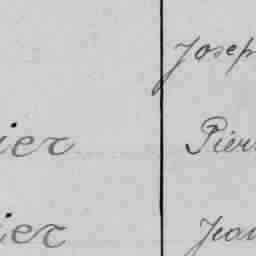 Josep
ier Pier
ier Jean